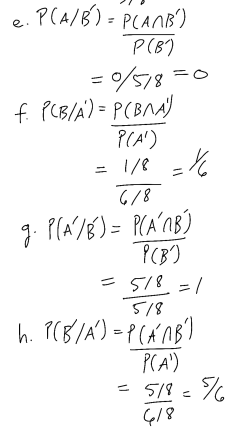 e. P(A/B′) = P(A∩B′)
P(B′)
= 0/5/8 = 0
f. P(B/A′) = P(B∩A′)
P(A′)
= 1/8 = 1/6
6/8
g. P(A′/B′) = P(A′∩B′)
P(B′)
= 5/8 = 1
5/8
h. P(B′/A′) = P(A′∩B′)
P(A′)
= 5/8 = 5/6
6/8